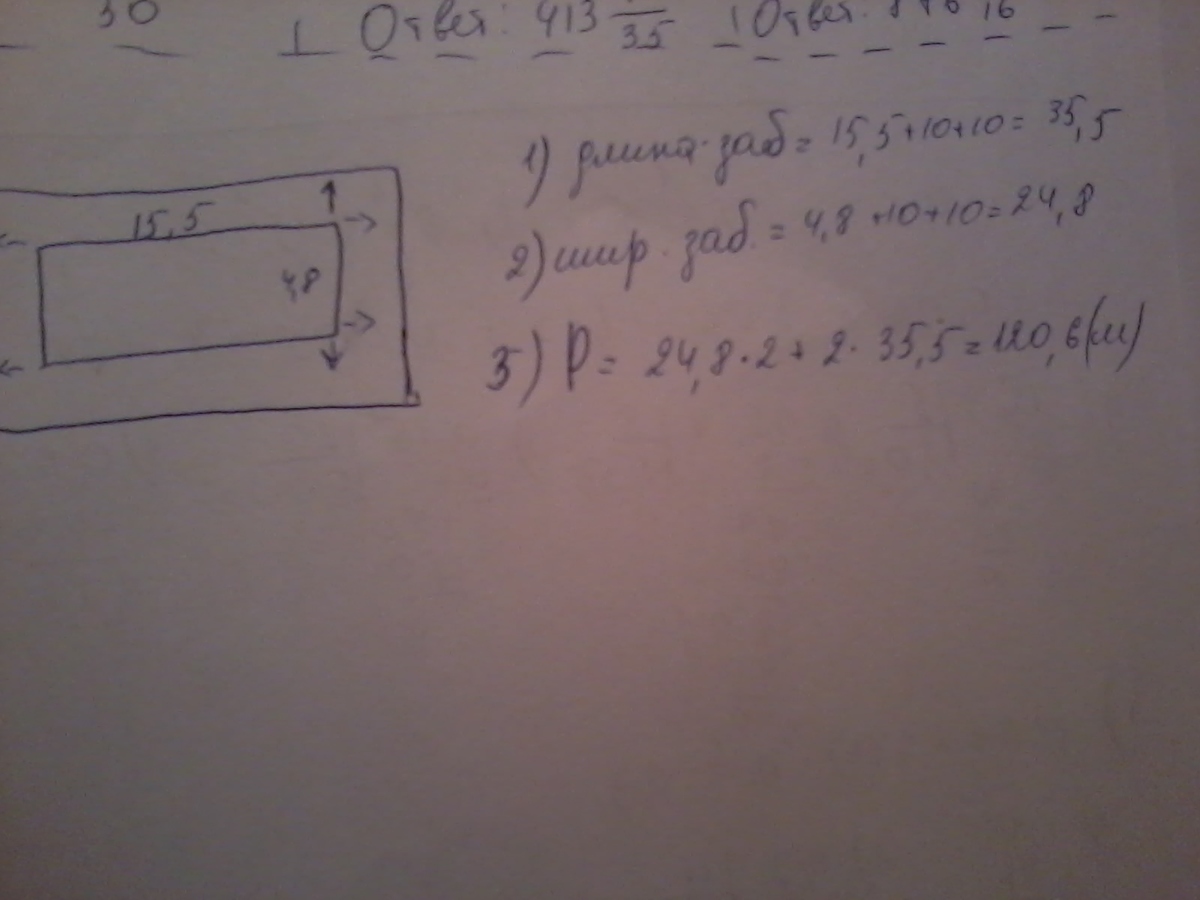 30
Ответ: 413 35
Ответ: 16
15,5
4,8
1) длина заб = 15,5+10+10= 35,5
2) шир. заб. = 4,8 +10+10= 24,8
3) P = 24,8·2 + 2· 35,5 = 120,6(м)